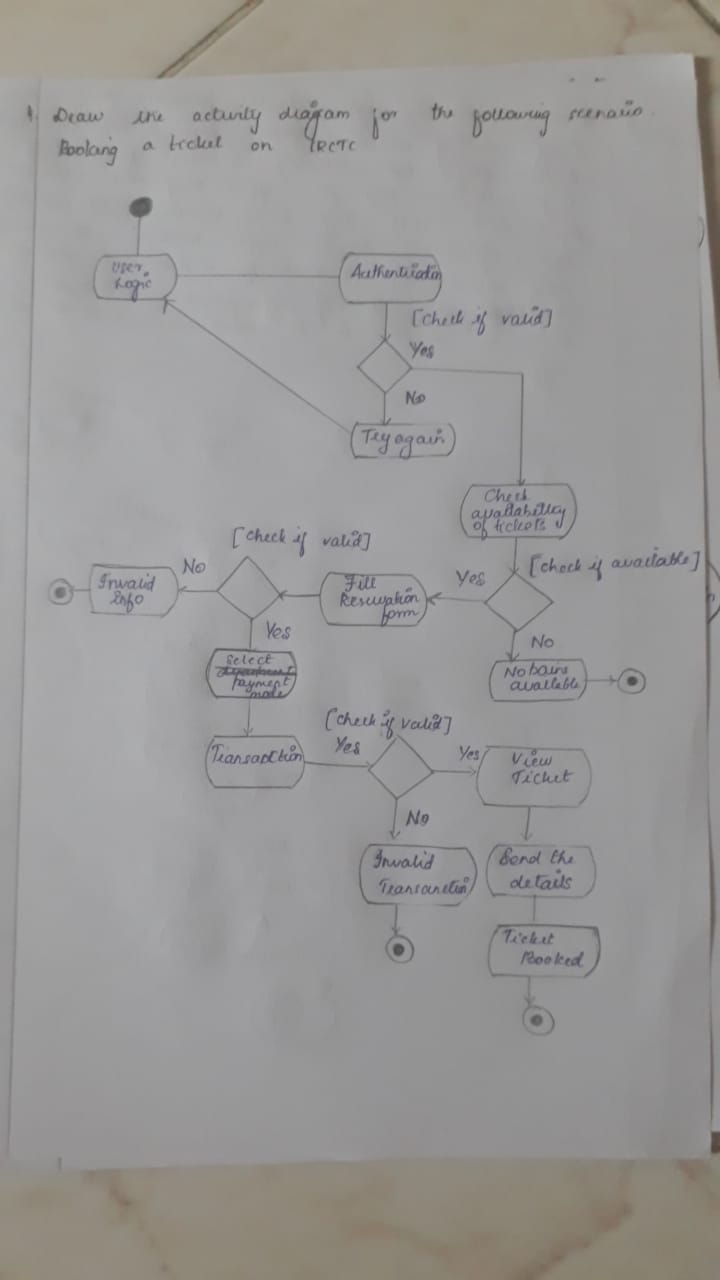 1. Draw the activity diagram for the following scenario.
Booking a ticket on IRCTC
User
Logic
Authentication
[Check if valid]
Yes
No
Try again
Check
availability
of tickets
[check if available]
Yes
No
No trains
available
Fill
Reservation
form
[check if valid]
No
Invalid
Info
Yes
Select
payment
mode
Transaction
Yes
[check if valid]
Yes
View
Ticket
No
Invalid
Transanction
Send the
details
Ticket
Booked